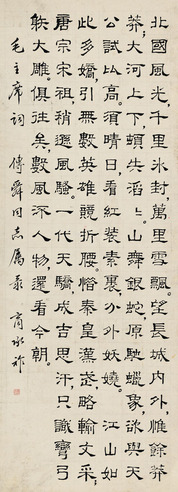 北國風光，千里冰封，萬里雪飄。望長城内外，惟餘莽
莽；大河上下，頓失滔〻。山舞銀蛇，原馳蠟象，欲與天
公試比高。須晴日，看紅裝素裹，分外妖嬈。江山如
此多嬌，引無數英雄競折腰。惜秦皇漢武，略輸文采；
唐宗宋祖，稍遜風騷。一代天驕，成吉思汗，只識彎弓
射大雕。俱往矣，數風流人物，還看今朝。
毛主席詞 傅舜同志屬录 商承祚